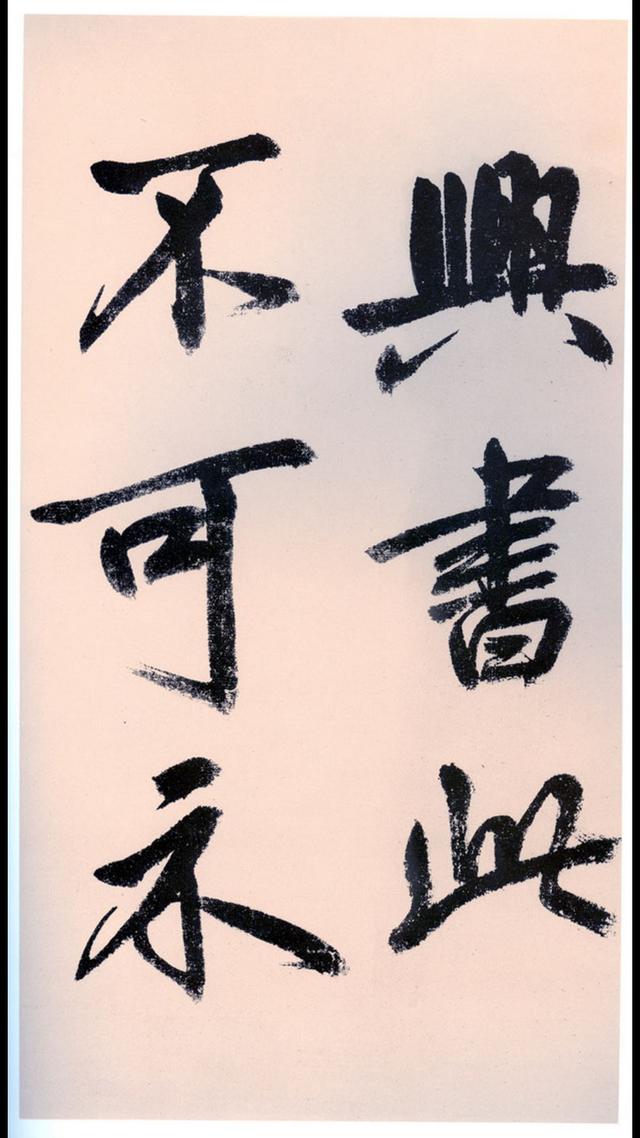 興書此
不可示